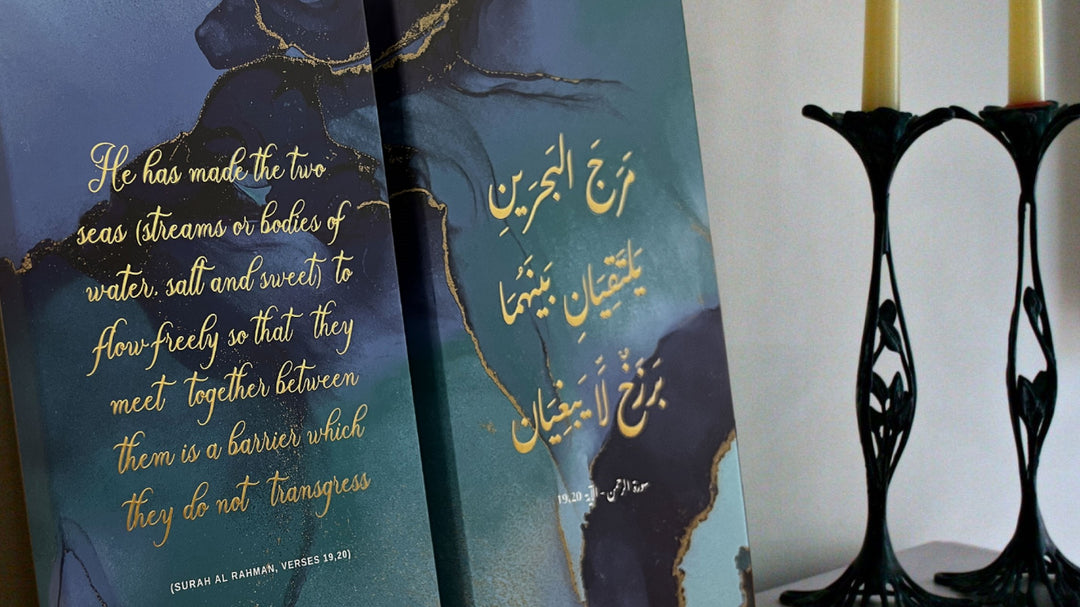 He has made the two
seas (streams or bodies of
water, salt and sweet) to
flow freely so that they
meet together between
them is a barrier which
they do not transgress
(SURAH AL RAHMAN, VERSES 19,20)
مَرَجَ البَحرَينِ
يَلتَقِيَانِ بَينَهُمَا
بَرَزَخٌ لَا يَبغِيَان
سورة الرحمن - الآية 19,20